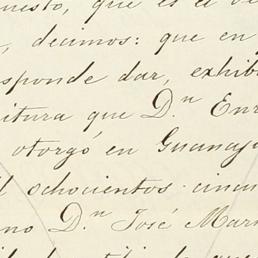 uesto, que es el
, decimos: que en
sponde dar, exhib
itura que D.n Enr
otorgó en Guanaj
il ochocientos cincu
no D.n José Mar